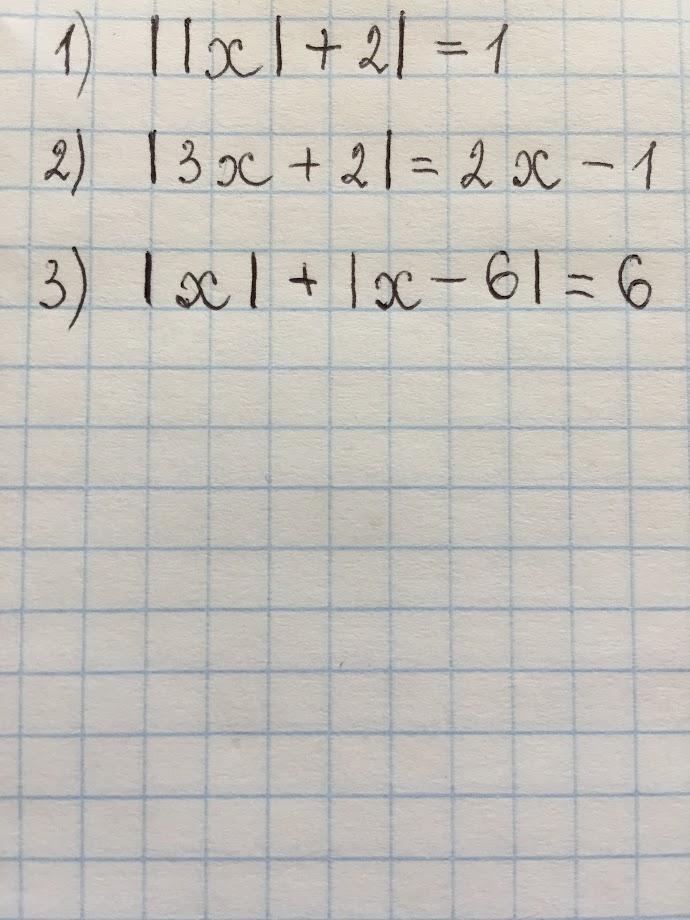 1) ||x| + 2| = 1
2) |3x + 2| = 2x - 1
3) |x| + |x - 6| = 6